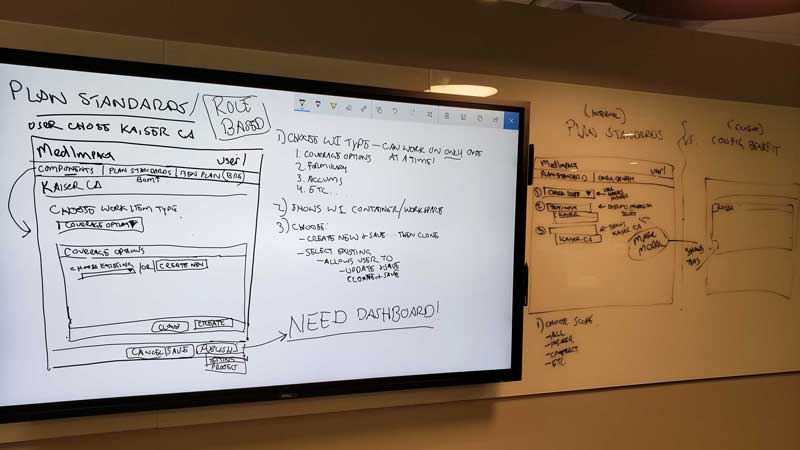 PLAN STANDARDS/
ROLE BASED
USER CHOSE KAISER CA
MedImpact
USER
COMPONENTS
PLAN STANDARDS
BEN PLAN (BPG)
BGMT
KAISER CA
CHOOSE WORK ITEM TYPE
COVERAGE OPTION
COVERAGE OPTIONS
CHOOSE EXISTING
OR
CREATE NEW
CLONE
CREATE
CANCEL
SAVE
PUBLISH
PROJECT
1) CHOOSE WI TYPE – CAN WORK ON ONLY ONE
AT A TIME!
1. COVERAGE OPTIONS
2. FORMULARY
3. ACCUMS
4. ETC...
2) SHOWS WI CONTAINER/WORKSPACE
3) CHOOSE:
– CREATE NEW & SAVE... THEN CLONE
– SELECT EXISTING
– ALLOWS USER TO
– UPDATE & SAVE
CLONE & SAVE
NEED DASHBOARD!
DELL
(INTERNAL)
PLAN STANDARDS
VS.
(CLIENT)
CONFIG BENEFIT
MedImpact
USER
PLAN STANDARDS
CONFIG BENEFIT
1) CHOOSE SCOPE
2)
KAISER
3)
KAISER CA
SHOWS
KAISER CA
MODAL
SHOWS
THIS
1) CHOOSE SCOPE
– ALL
– INSURER
– CONTRACT
– ETC